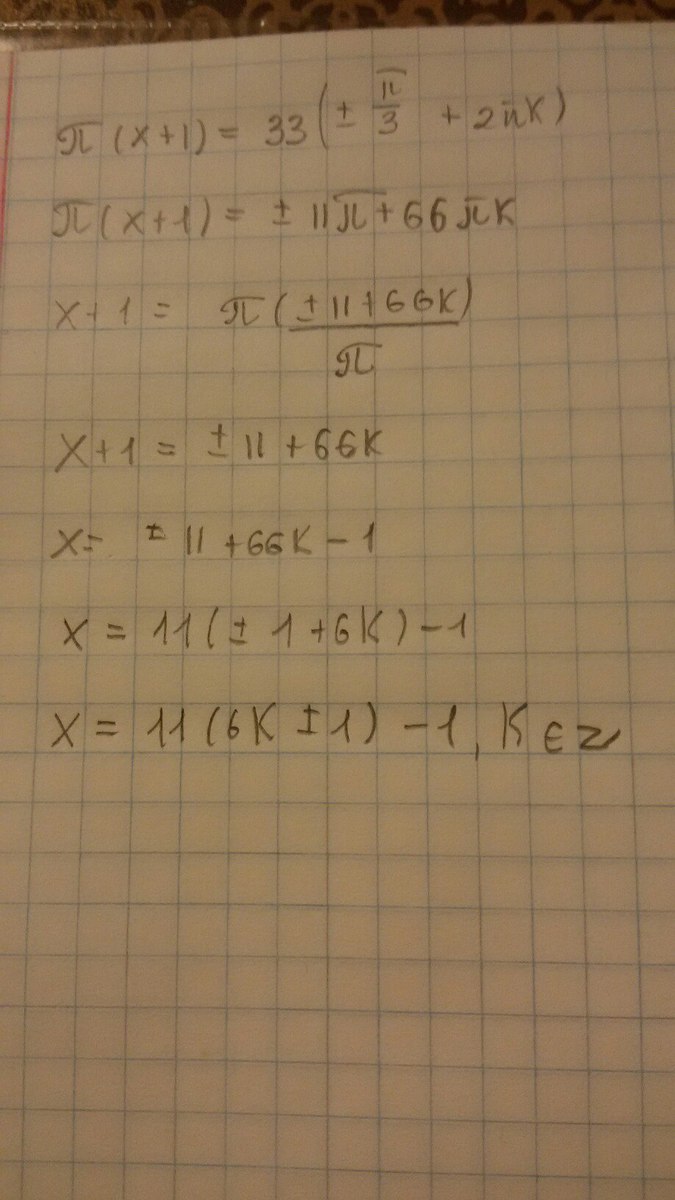 π(x+1) = 33(± π/3 + 2πK)
π(x+1) = ± 11π + 66πK
x+1 = π(±11+66K)/π
x+1 = ±11 + 66K
x= ±11 +66K - 1
x = 11(± 1 +6K) -1
x = 11(6K ±1) -1, K ∈ Z